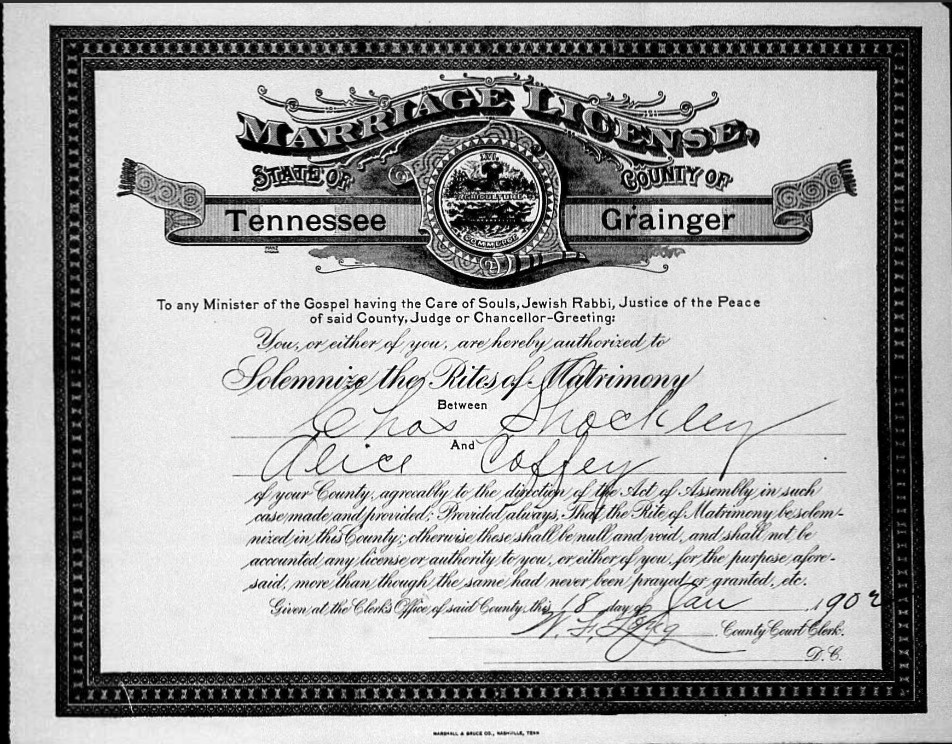 MARRIAGE LICENSE,
STATE OF COUNTY OF
Tennessee Grainger
XVI.
AGRICULTURE
COMMERCE
To any Minister of the Gospel having the Care of Souls, Jewish Rabbi, Justice of the Peace
of said County, Judge or Chancellor-Greeting:
You, or either of you, are hereby authorized to
Solemnize the Rites of Matrimony
Between
Chas Shockley
And
Alice Coffey
of your County, agreeably to the direction of the Act of Assembly in such
case made and provided; Provided always, That the Rite of Matrimony be solem-
nized in this County; otherwise these shall be null and void, and shall not be
accounted any license or authority to you, or either of you, for the purpose afore-
said, more than though the same had never been prayed or granted, etc.
Given at the Clerk's Office of said County, this 18 day of Jan 1902
W. F. County Court Clerk.
D. C.
MARSHALL & BRUCE CO., NASHVILLE, TENN